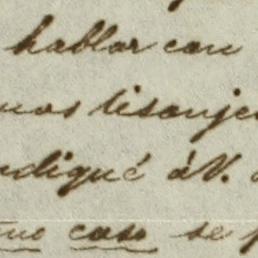 hablar con
mas lisonje
ndiqué á V.
mo caso se p